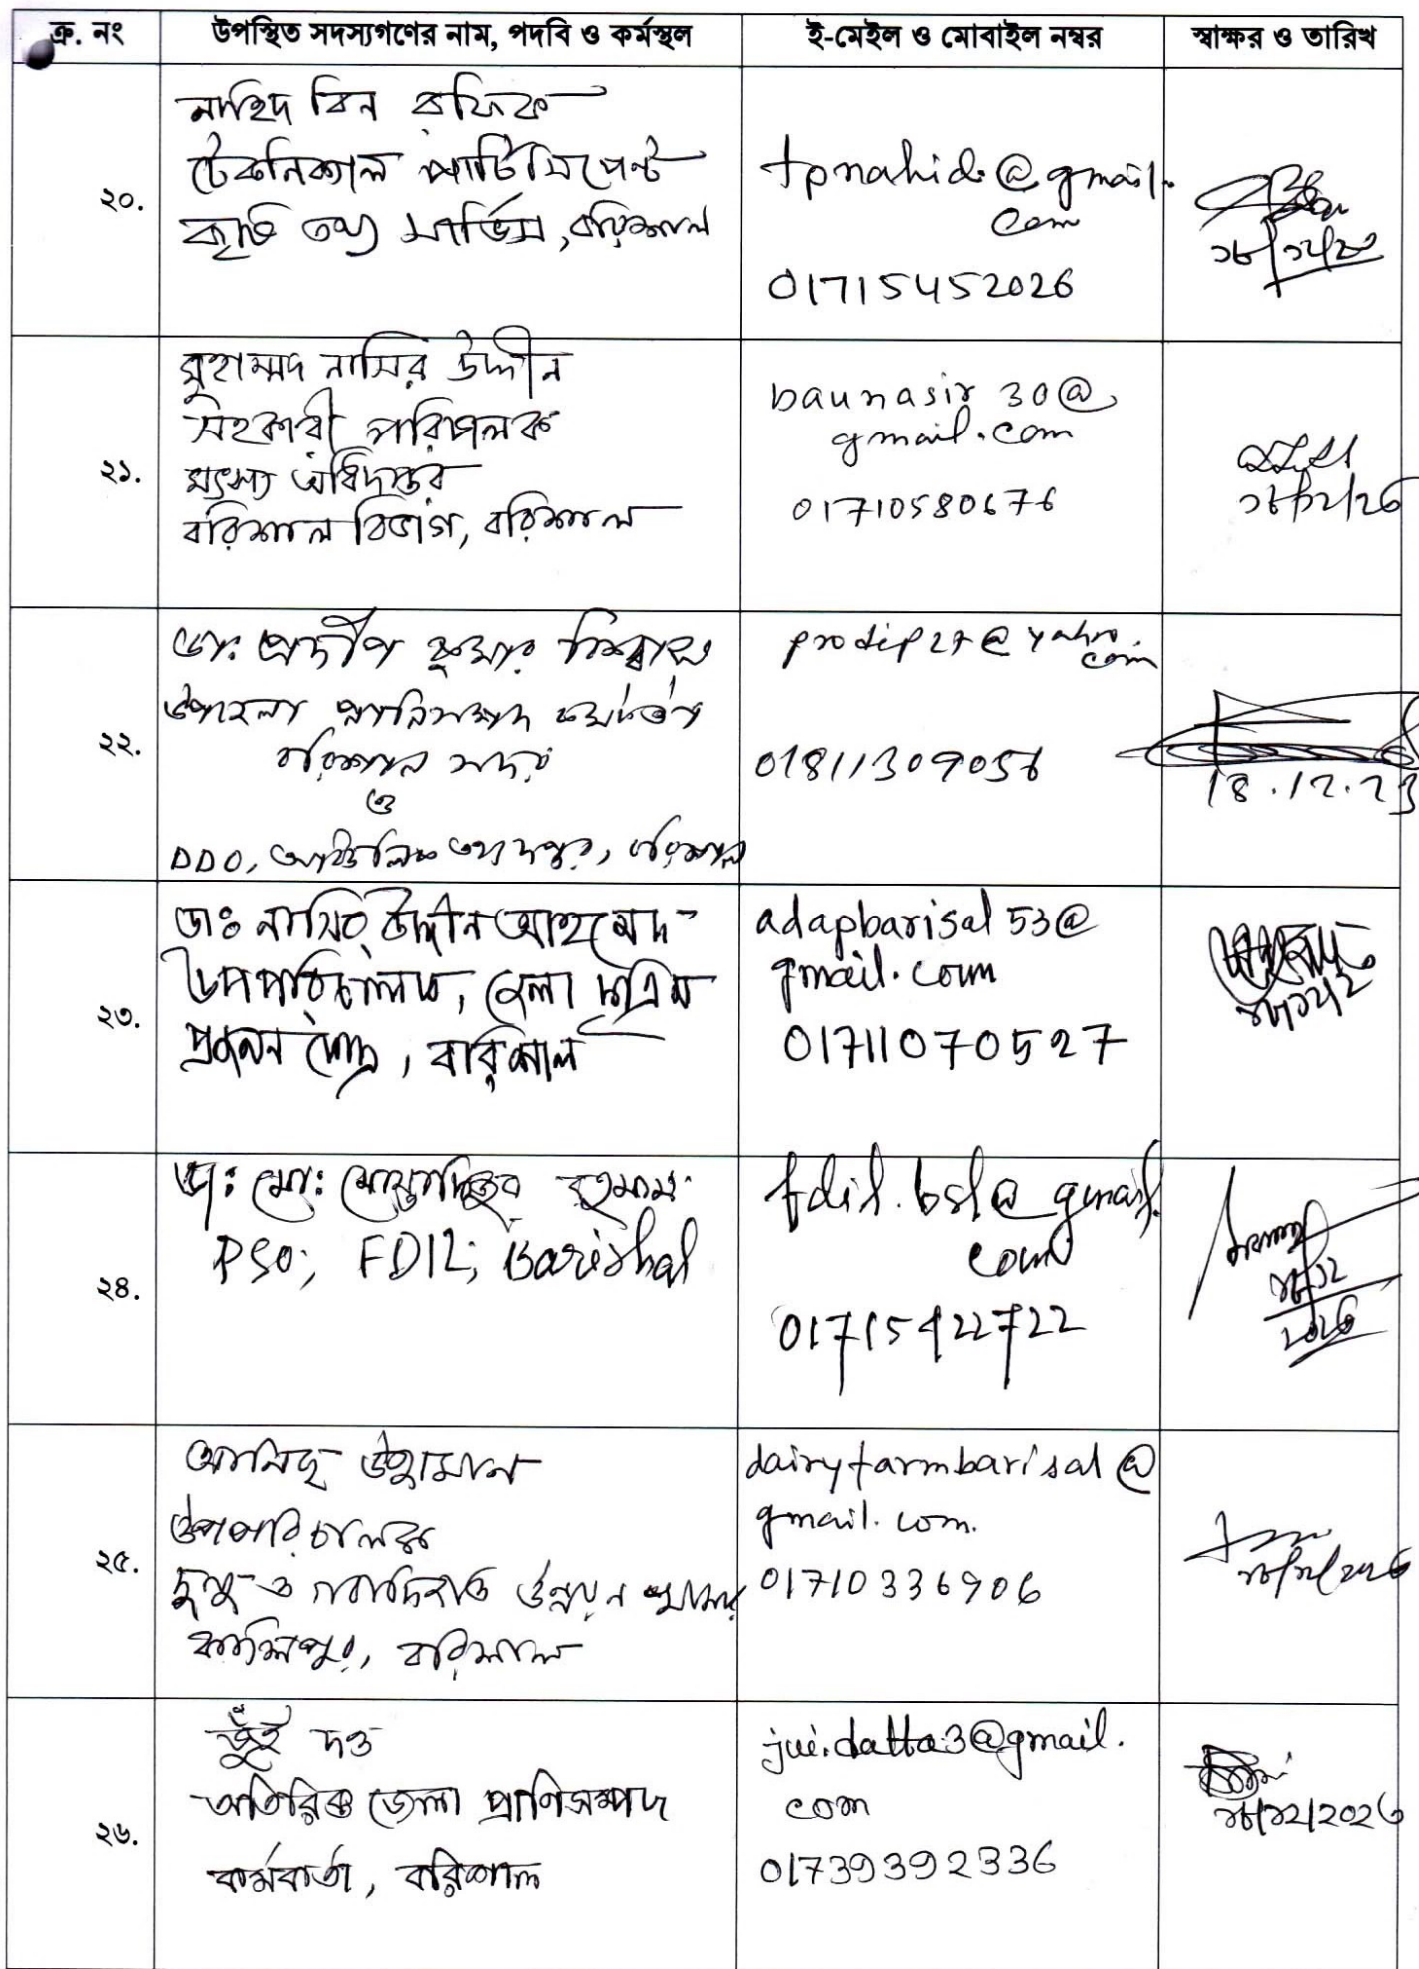 ক্র. নং উপস্থিত সদস্যগণের নাম, পদবি ও কর্মস্থল ই-মেইল ও মোবাইল নম্বর স্বাক্ষর ও তারিখ
২০.
নাহিদ বিন রফিক
টেকনিক্যাল পার্টিসিপেন্ট
কৃষি তথ্য সার্ভিস, বরিশাল
tpnahid@gmail.
com
01715452026
২১.
মুহাম্মদ নাসির উদ্দীন
সহকারী পরিচালক
মৎস্য অধিদপ্তর
বরিশাল বিভাগ, বরিশাল
baunasir30@
gmail.com
01710580676
২২.
ডা: প্রদীপ কুমার বিশ্বাস
উপজেলা প্রানিসম্পদ কর্মকর্তা
বরিশাল সদর
ও
DDO, আঞ্চলিক তথ্য দপ্তর, বরিশাল
prodip27@yahoo.
com
18.12.23
২৩.
ডাঃ নাসির উদ্দীন আহমেদ
উপপরিচালক, জেলা কৃত্রিম
প্রজনন কেন্দ্র, বরিশাল
adapbarisal53@
gmail.com
01711070527
২৪.
ডা: মো: রহমান
PSO; FDIL; Barishal
fdil.bsl@gmail.
com
01715422722
২৫.
উপপরিচালক
দুগ্ধ ও গবাদিপশু উন্নয়ন খামার
কাশিপুর, বরিশাল
dairyfarmbarisal@
gmail.com.
01710336906
২৬.
জুঁই দত্ত
অতিরিক্ত জেলা প্রাণিসম্পদ
কর্মকর্তা, বরিশাল
jui.datta3@gmail.
com
01739392336